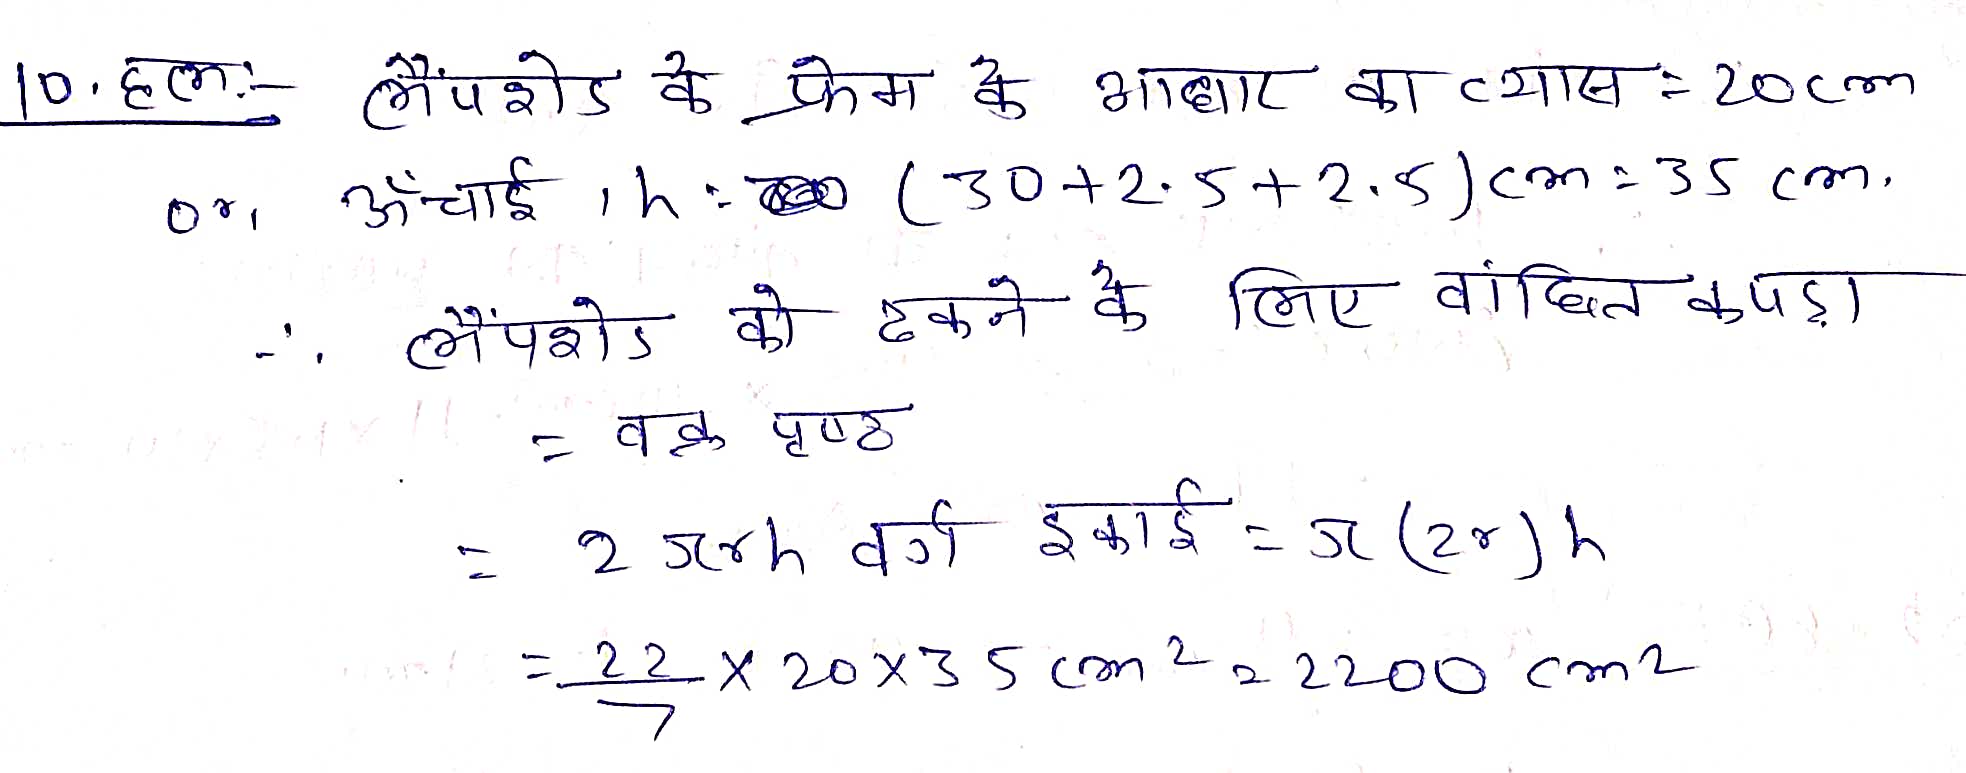 10. हल:- लैंपशेड के फ्रेम के आधार का व्यास = 20cm
or, ऊँचाई, h = (30+2.5+2.5)cm = 35 cm.
∴ लैंपशेड को ढकने के लिए वांछित कपड़ा
= वक्र पृष्ठ
= 2πrh वर्ग इकाई = π(2r)h
= 22/7 × 20 × 35 cm2 = 2200 cm2